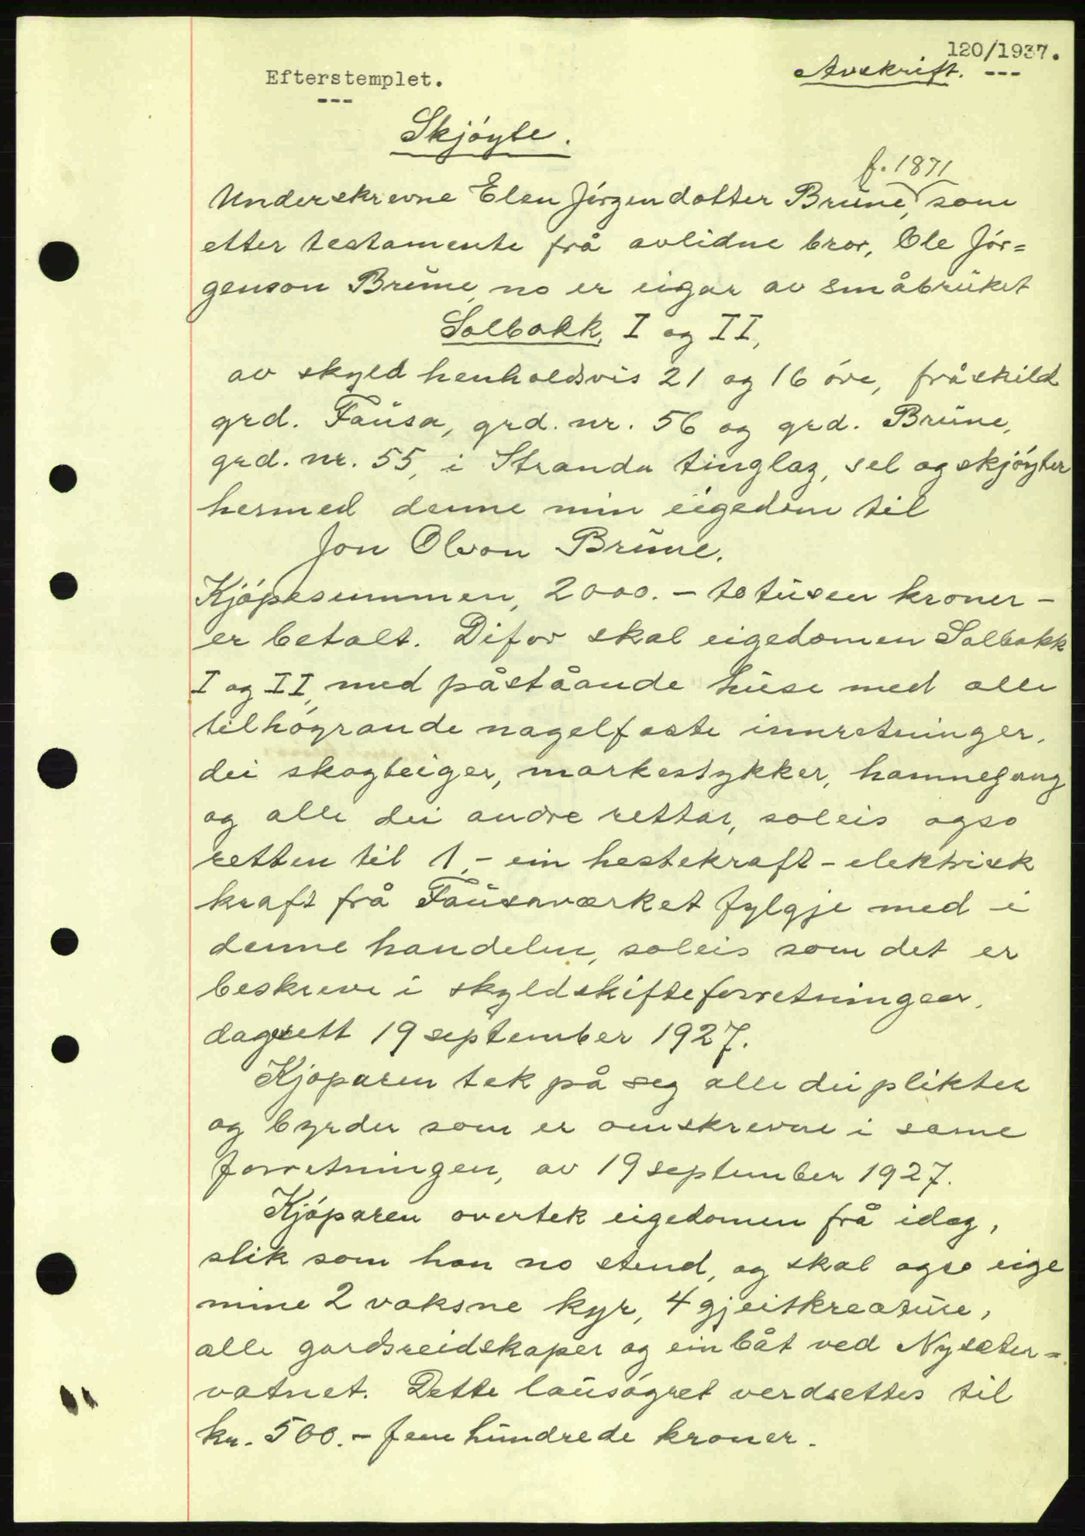 120/1937.
Efterstemplet.
Avskrift.
Skjöyte.
f. 1871
Underskrevne Elen Jörgendotter Brune, som
etter testamente frå avlidne bror, Ole Jör=
genson Brune, no er eigar av småbruket
Solbakk, I og II,
av skyld henholdsvis 21 og 16 öre, fråskild
grd. Fausa, grd. nr. 56 og grd. Brune,
grd. nr. 55, i Stranda tinglag, sel og skjöyter
hermed denne min eigedom til
Jon Olson Brune.
Kjöpesummen, 2000.- totusen kroner -
er betalt. Difor skal eigedomen Solbakk
I og II, med påståande huse med alle
tilhögrande nagelfaste innretninger,
dei skogteiger, markestykker, hamnegang
og alle dei andre rettar, soleis ogso
retten til 1,- ein hestekraft - elektrisk
kraft frå Fausaværket fylgje med i
denne handelen, soleis som det er
beskreve i skyldskifteforretningen,
dagsett 19 september 1927.
Kjöparen tek på seg alle dei plikter
og byrder som er omskrevne i same
forretningen, av 19 september 1927.
Kjöparen overtek eigedomen frå idag,
slik som han no stend, og skal ogso eige
mine 2 vaksne kyr, 4 gjeitkreature,
alle gardsreidskaper og ein båt ved Nysæter=
vatnet. Dette lausögret verdsettes til
kr. 500.- fem hundrede kroner.